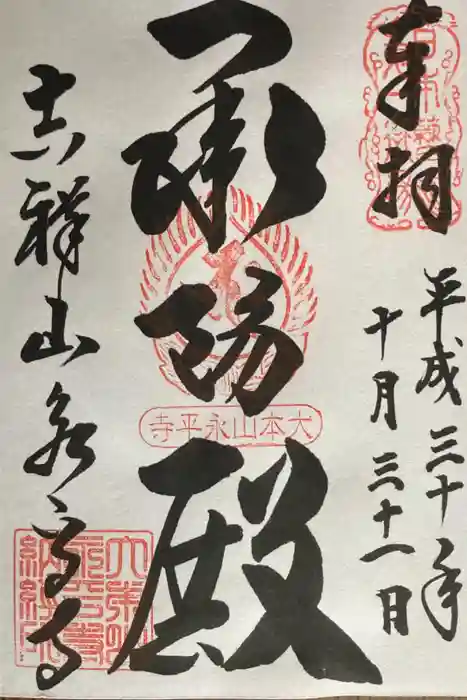 奉拝
平成三十年
十月三十一日
承陽殿
大本山永平寺
吉祥山永平寺